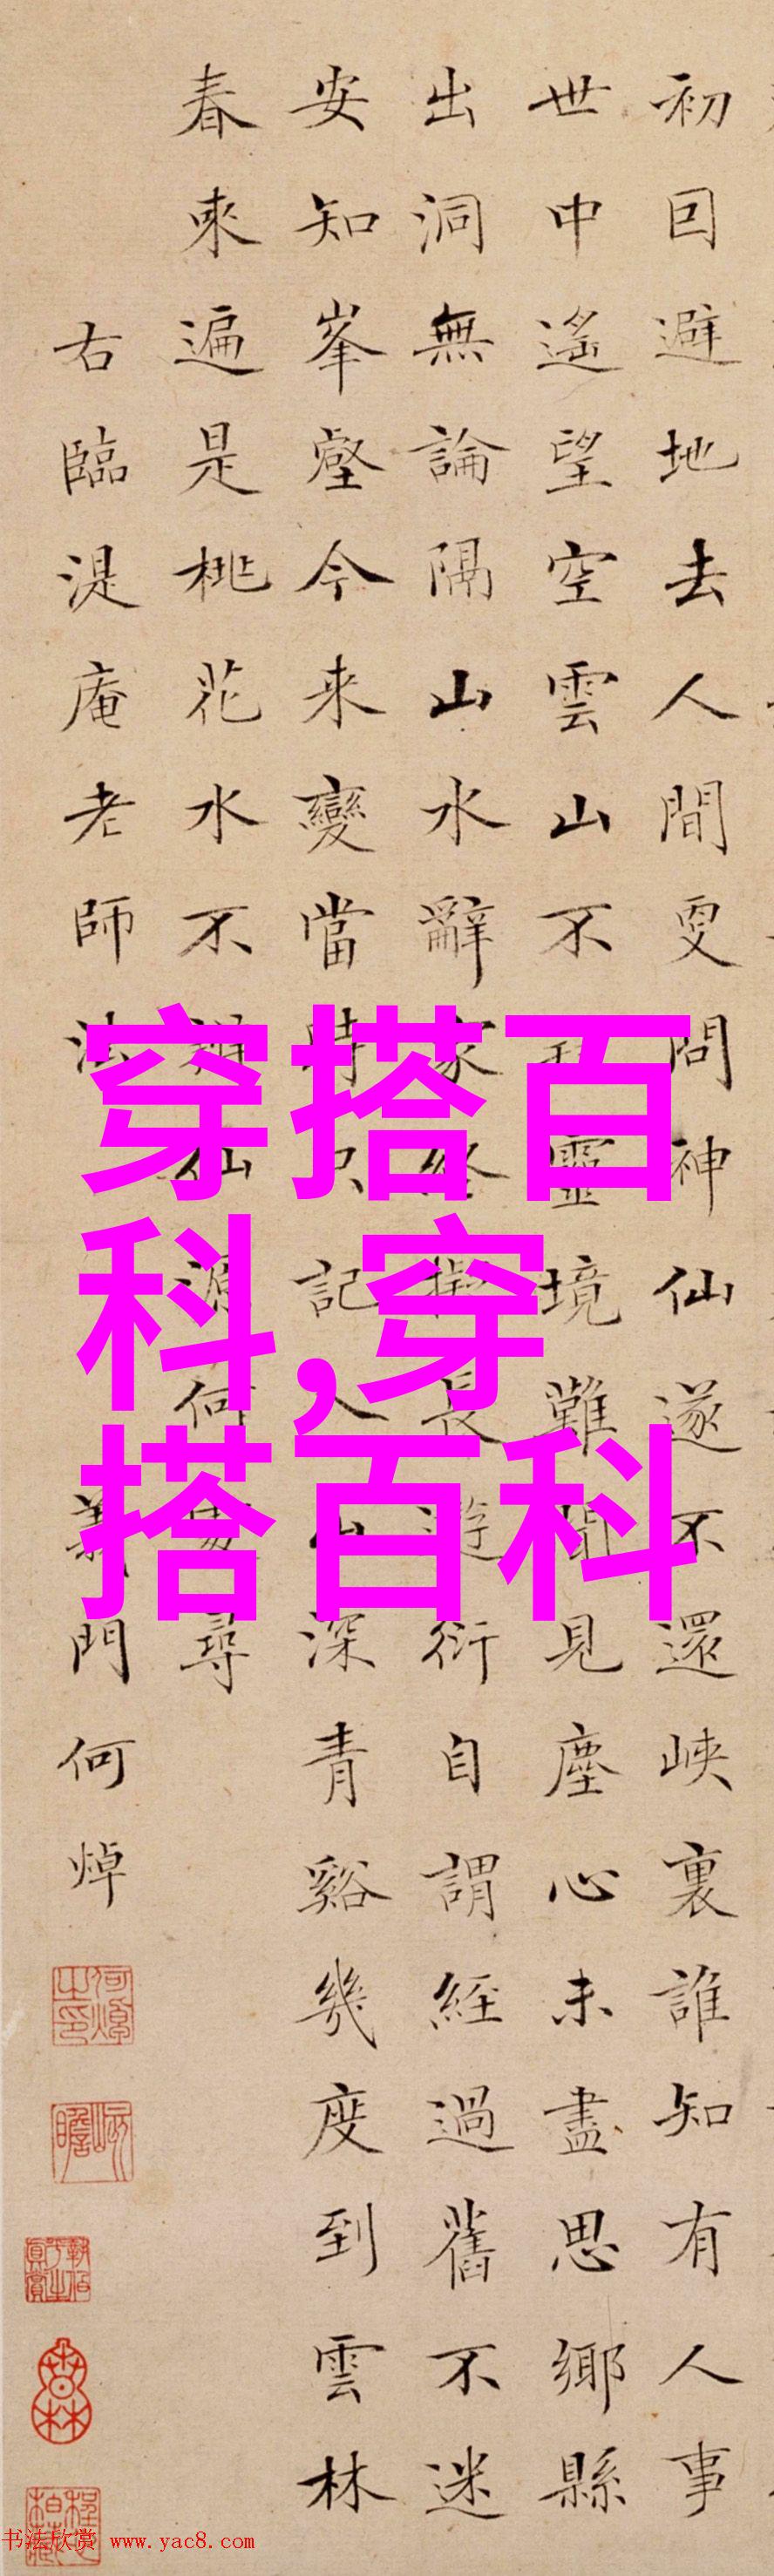 初回避地去人間更問神仙遂不還峽裏誰知有人事
世中遙望空雲山不靈境難聞見塵心未盡思鄉縣
出洞無論隔山水辭家終擬長遊衍自謂經過舊不迷
安知峯壑今來變當時只記入山深青谿幾度到雲林
春來遍是桃花水不辨仙源何處尋
右臨湜庵老師法
義門何焯
穿搭百
科,穿
搭百科
书法欣赏 www.yac8.com